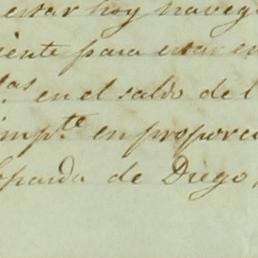 estar hoy naveg
iente para estar en
tas. en el saldo del
impte. en proporci
de Diego,